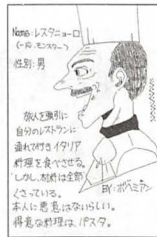 Name: レスタニョーロ
性別: 男
旅人を強引に
自分のレストランに
連れて行き イタリア
料理を食べさせる。
しかし、材料は全部
くさっている。
本人に悪意はないらしい。
得意な料理は、パスタ。
BY: ボヘミアン